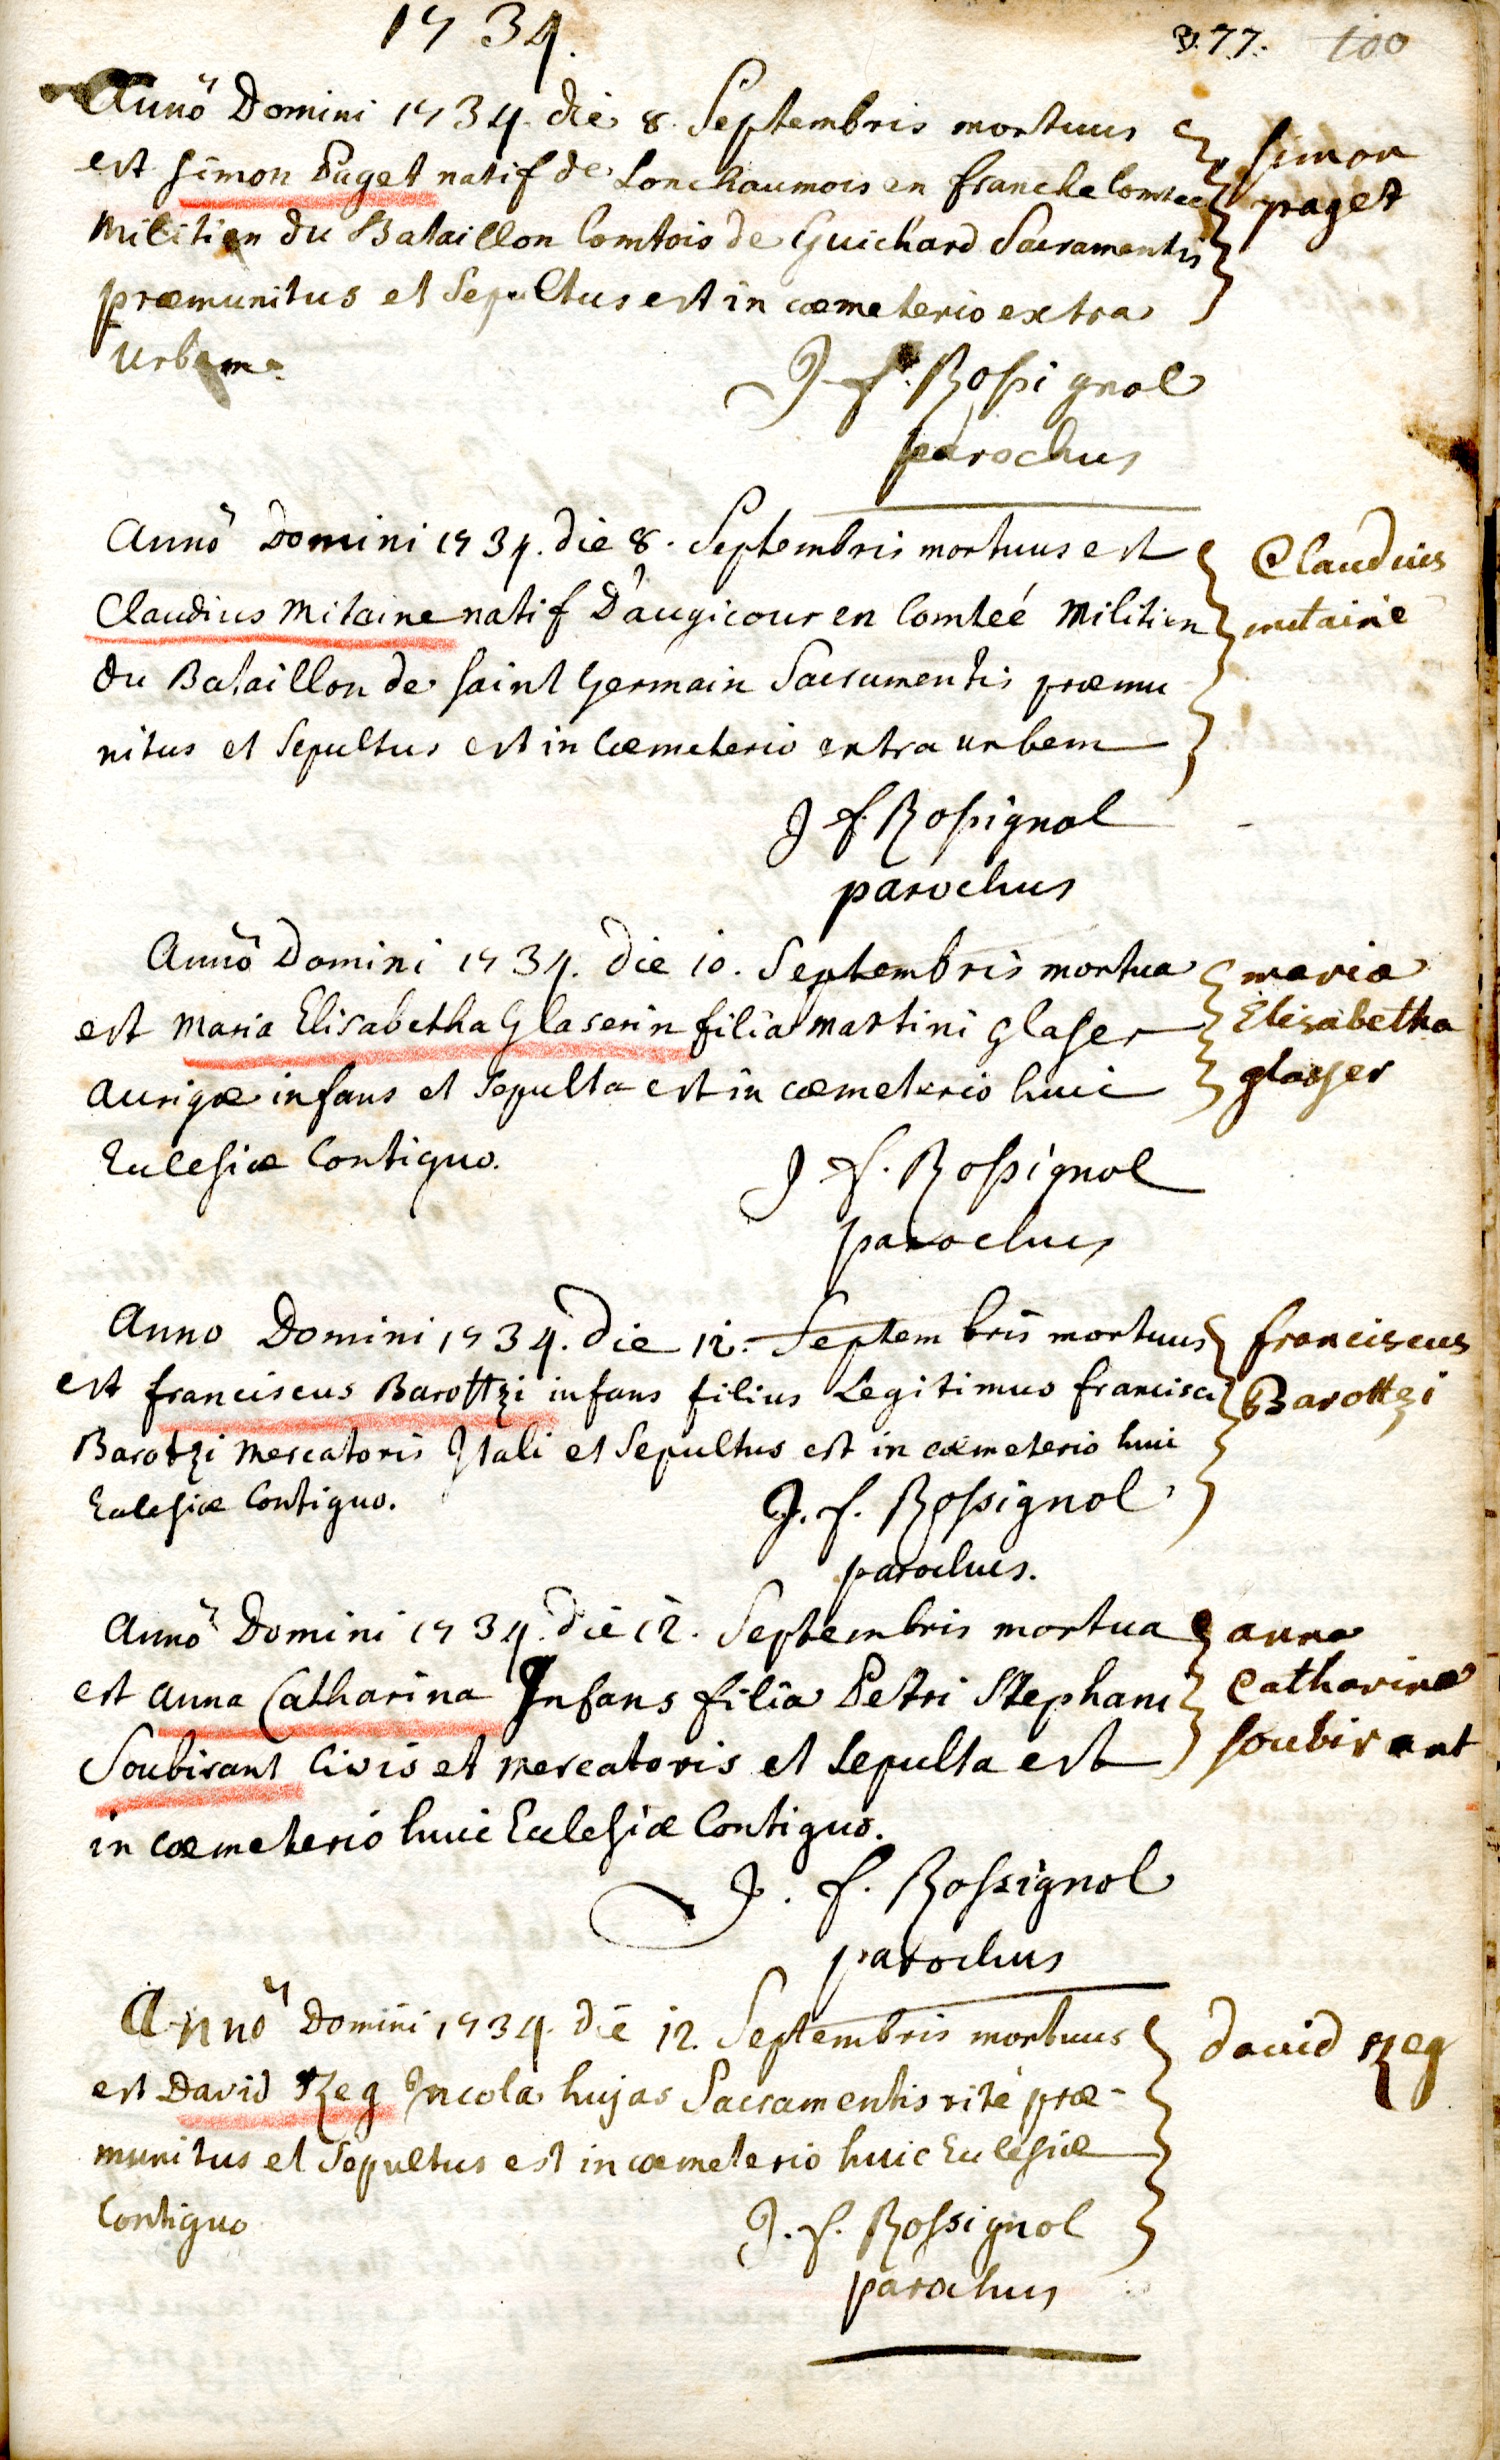 1734.
P. 77. 100
Anno Domini 1734. die 8. Septembris mortuus
est Simon Paget natif de Lonchaumois en franche Comteé
Militien du Bataillon Comtois de Guichard Sacramentis
præmunitus et Sepultus est in cœmeterio extra
Urbem.
Simon
paget
J. f. Rossignol
parochus
Anno Domini 1734. die 8. Septembris mortuus est
Claudius Mitaine natif D'augicour en Comteé Militien
du Bataillon de saint Germain Sacramentis præmu
nitus et Sepultus est in Cœmeterio extra urbem
Claudius
mitaine
J f. Rossignol
parochus
Anno Domini 1734. die 10. Septembris mortua
est Maria Elisabetha Glaserin filia Martini Glaser
Aurigæ infans et Sepulta est in cœmeterio huic
Eclesiæ Contiguo.
maria
Elisabetha
glasser
J f. Rossignol
parochus
Anno Domini 1734. Die 12. Septembris mortuus
est franciscus Barottzi infans filius Legitimus francisci
Barotzi Mercatoris Itali et Sepultus est in cœmeterio huic
Eclesiæ Contiguo.
franciscus
Barottzi
J. f. Rossignol
parochus.
Anno Domini 1734. die 12. Septembris mortua
est Anna Catharina Infans filia Petri Stephani
Soubirant Civis et Mercatoris et Sepulta est
in cœmeterio huic Eclesiæ Contiguo.
anna
Catharina
soubirant
J. f. Rossignol
parochus
Anno Domini 1734. die 12. Septembris mortuus
est David Rzeg Incola hujas Sacramentis rité præ-
munitus et Sepultus est in cœmeterio huic Eclesiæ
Contiguo
david Rzeg
J. f. Rossignol
parochus